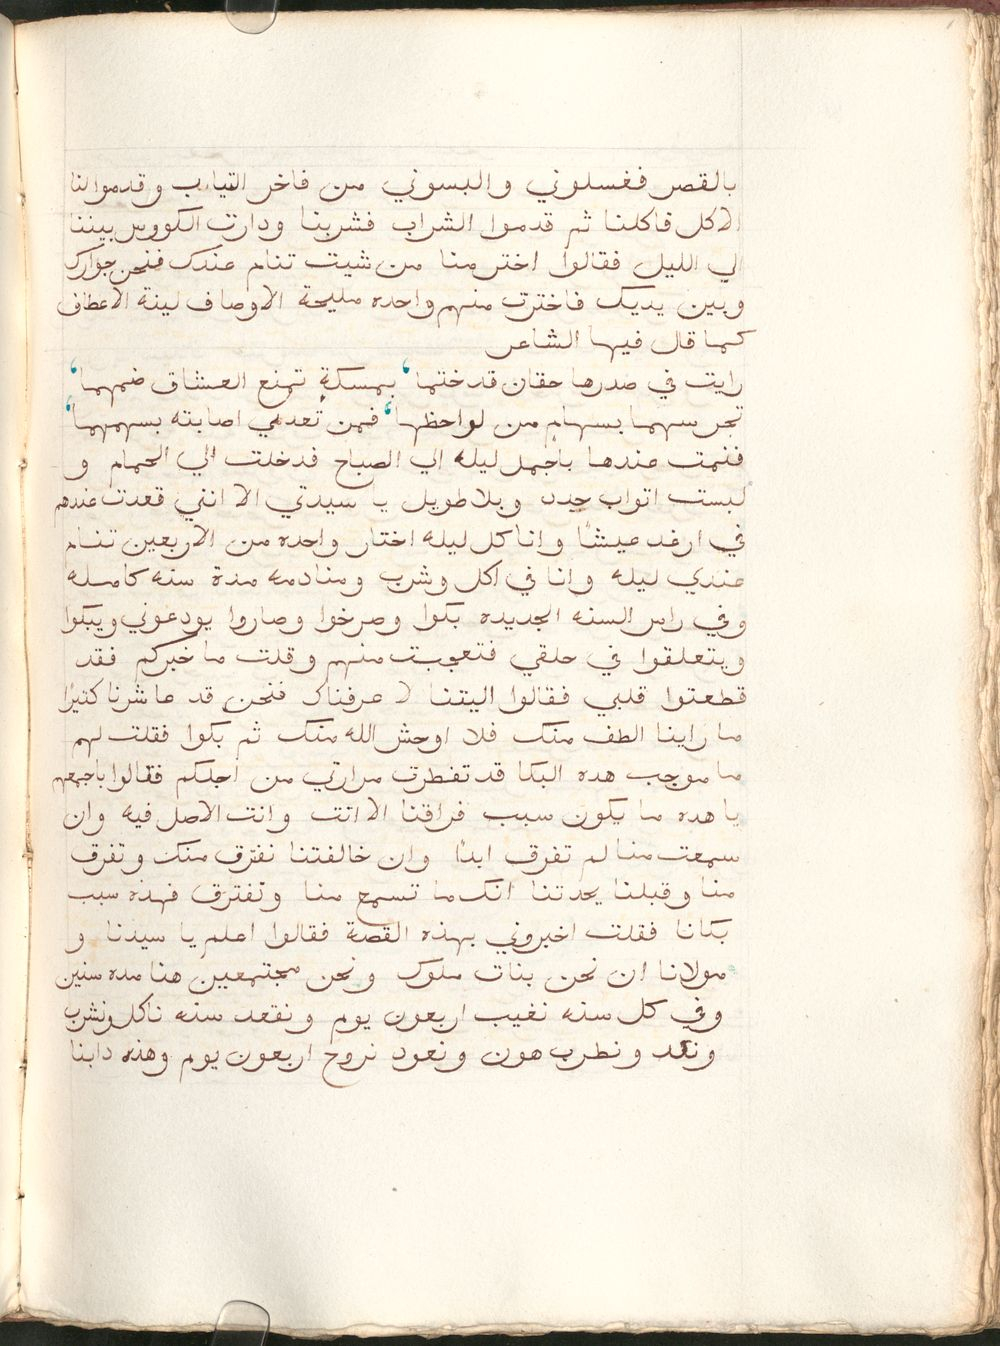 بالقصر فغسلوني والبسوني من فاخر التياب وقدموا لنا
الاكل فاكلنا ثم قدموا الشراب فشربنا ودارت الكووس بيننا
الي الليل فقالوا اختر منا من شيت تنام عندك فنحن جوارك
وبين يديك فاخترت منهم واحده مليحة الاوصاف لينة الاعطاف
كما قال فيها الشاعر
رايت في صدرها حقان قد ختما ، بمسكةٍ تمنع العشاق ضمهما ،
تحرسهما بسهامٍ من لواحظها ، فمن تعدي اصابته بسهمهما ،
فنمت عندها باجمل ليله الي الصباح فدخلت الي الحمام و
لبست اتواب جدد وبلا طويل يا سيدتي الا انني قعدت عندهم
في ارغد عيشًا وانا كل ليله اختار واحده من الاربعين تنام
عندي ليله وانا في اكل وشرب ومنادمه مدة سنه كامله
وفي راس السنه الجديده بكوا وصرخوا وصاروا يودعوني ويبكوا
ويتعلقوا في حلقي فتعجبت منهم وقلت ما خبركم فقد
قطعتوا قلبي فقالوا اليتنا لا عرفناك فنحن قد عاشرنا كتيرًا
ما راينا الطف منك فلا اوحش الله منك ثم بكوا فقلت لهم
ما موجب هده البكا قد تفطرت مرارتي من اجلكم فقالوا باجمعهم
يا هده ما يكون سبب فراقنا الا انت وانت الاصل فيه وان
سمعت منا لم تفرق ابدًا وان خالفتنا نفترق منك وتفرق
منا وقبلنا يحدتنا انك ما تسمع منا ونفترق فهذه سبب
بكانا فقلت اخبروني بهذه القصة فقالوا اعلم يا سيدنا و
مولانا ان نحن بنات ملوك ونحن مجتمعين هنا مده سنين
وفي كل سنه نغيب اربعون يوم ونقعد سنه ناكل ونشرب
ونلد ونطرب هون ونعود نروح اربعون يوم وهذه دابنا